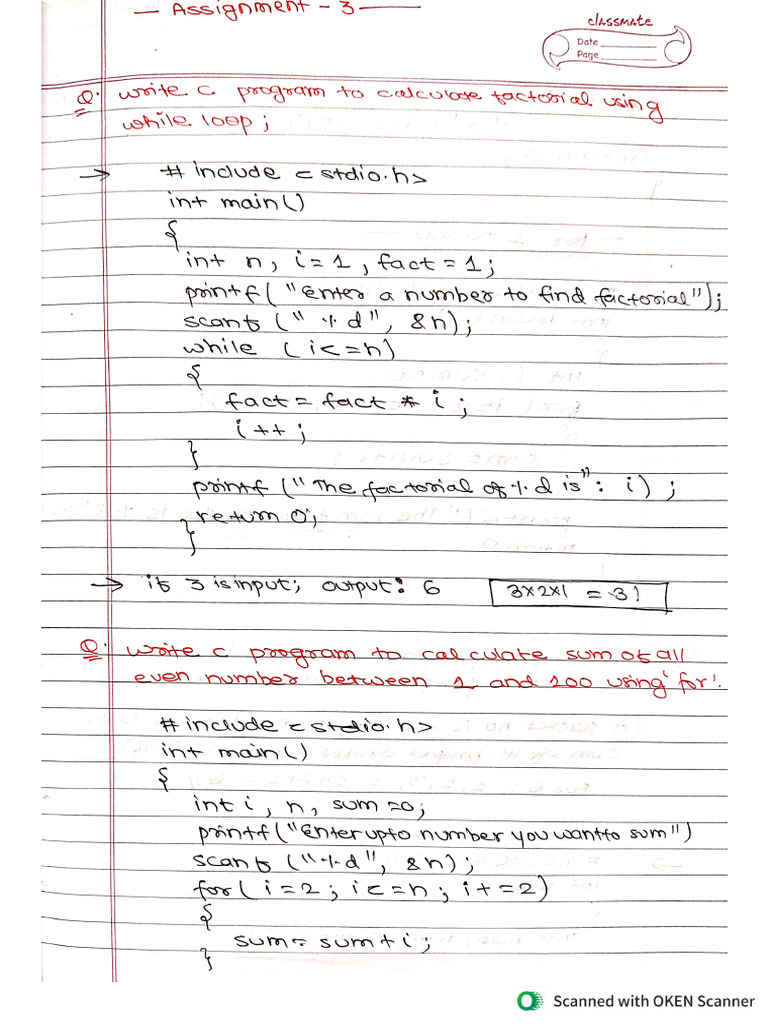 — Assignment - 3 —
classmate
Date
Page
Q. write c program to calculate factorial using
while loop;
→ # include < stdio.h>
int main()
{
int n, i=1, fact=1;
printf("Enter a number to find factorial");
scanf ("%d", &n);
while (i<=n)
{
fact = fact * i;
i++;
}
printf ("The factorial of %d is": i);
return 0;
}
→ if 3 is input; output: 6 3x2x1 = 3!
Q. write c program to calculate sum of all
even number between 1 and 100 using 'for'.
# include < stdio.h>
int main()
{
int i, n, sum=0;
printf("Enter upto number you want to sum")
scanf ("%d", &n);
for(i=2; i<=n; i+=2)
{
sum= sum+i;
}
Scanned with OKEN Scanner